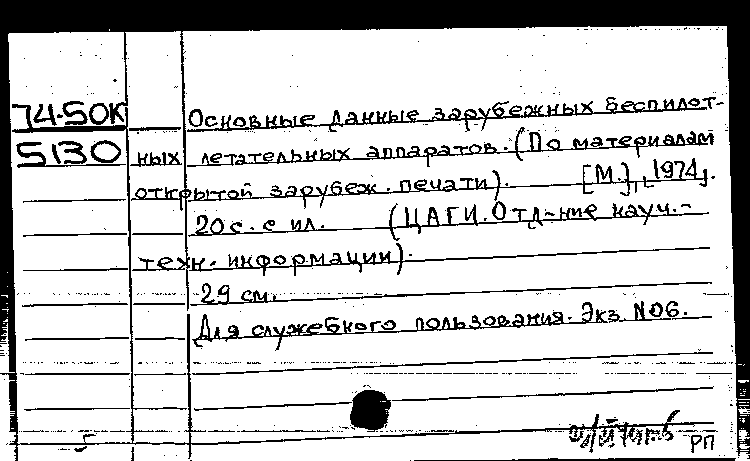 74-50К Основные данные зарубежных беспилот-
5130 ных летательных аппаратов. (По материалам
открытой зарубеж. печати). [М.], [1974].
20 с. с ил. (ЦАГИ. Отд-ние науч.-
техн. информации).
29 см.
Для служебного пользования. Экз. N06.
5 РП